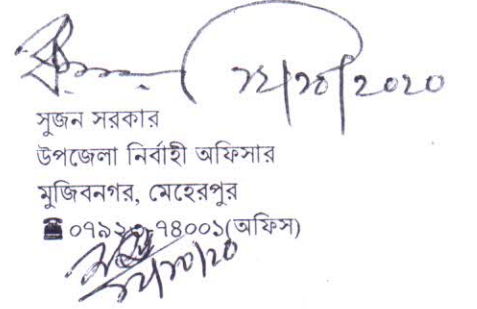 ১২/১০/২০২০
সুজন সরকার
উপজেলা নির্বাহী অফিসার
মুজিবনগর, মেহেরপুর
☎ ০৭৯২৩-৭৪০০১(অফিস)
১২/১০/২০